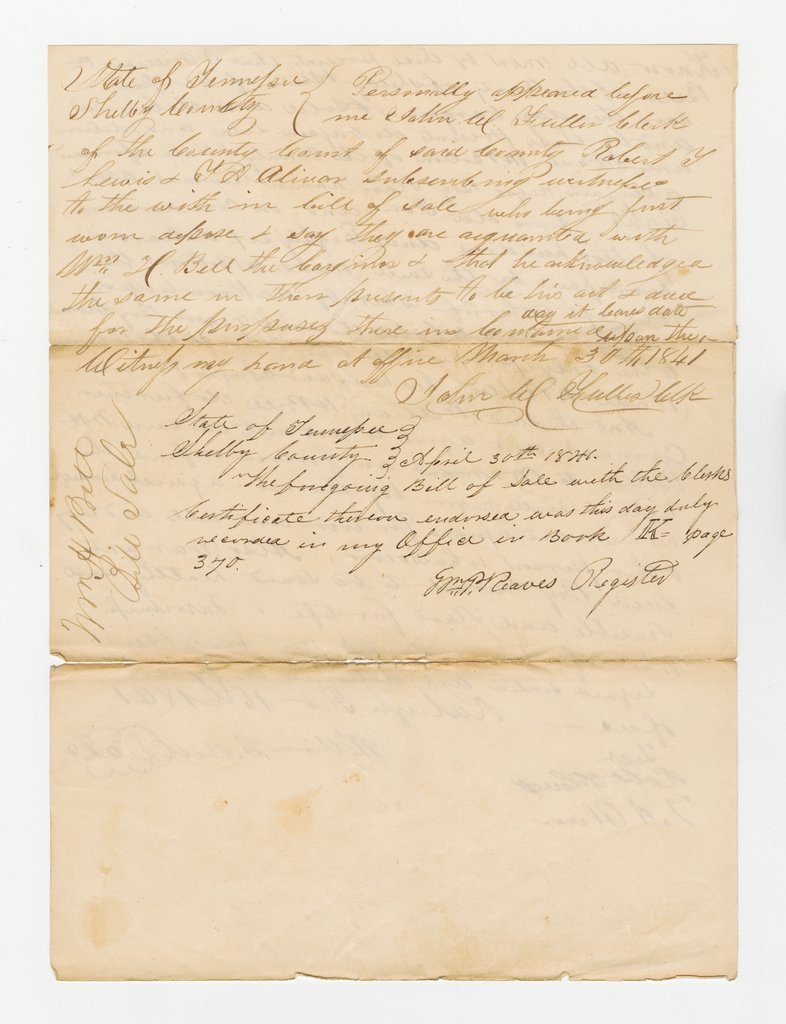 State of Tennessee
Shelby County
Personally appeared before
me John W Fuller Clerk
of the County Court of said County Robert T
Lewis & Olivor subscribing witnesses
to the with in bill of sale who being first
worn depose & say they are acquainted with
Wm H. Bell the barginor & that he acknowledged
the same in there presents to be his act & deed
for the purposes there in Contained day it bears date upon the
Witness my hand at office March 30th 1841
John W Fuller Clk
State of Tennessee
Shelby County April 30th 1841.
The foregoing Bill of Sale with the Clerks
Certificate thereon endorsed was this day duly
recorded in my Office in Book K page
370.
Wm P. Reaves Register
Wm H Bell
Bill Sale